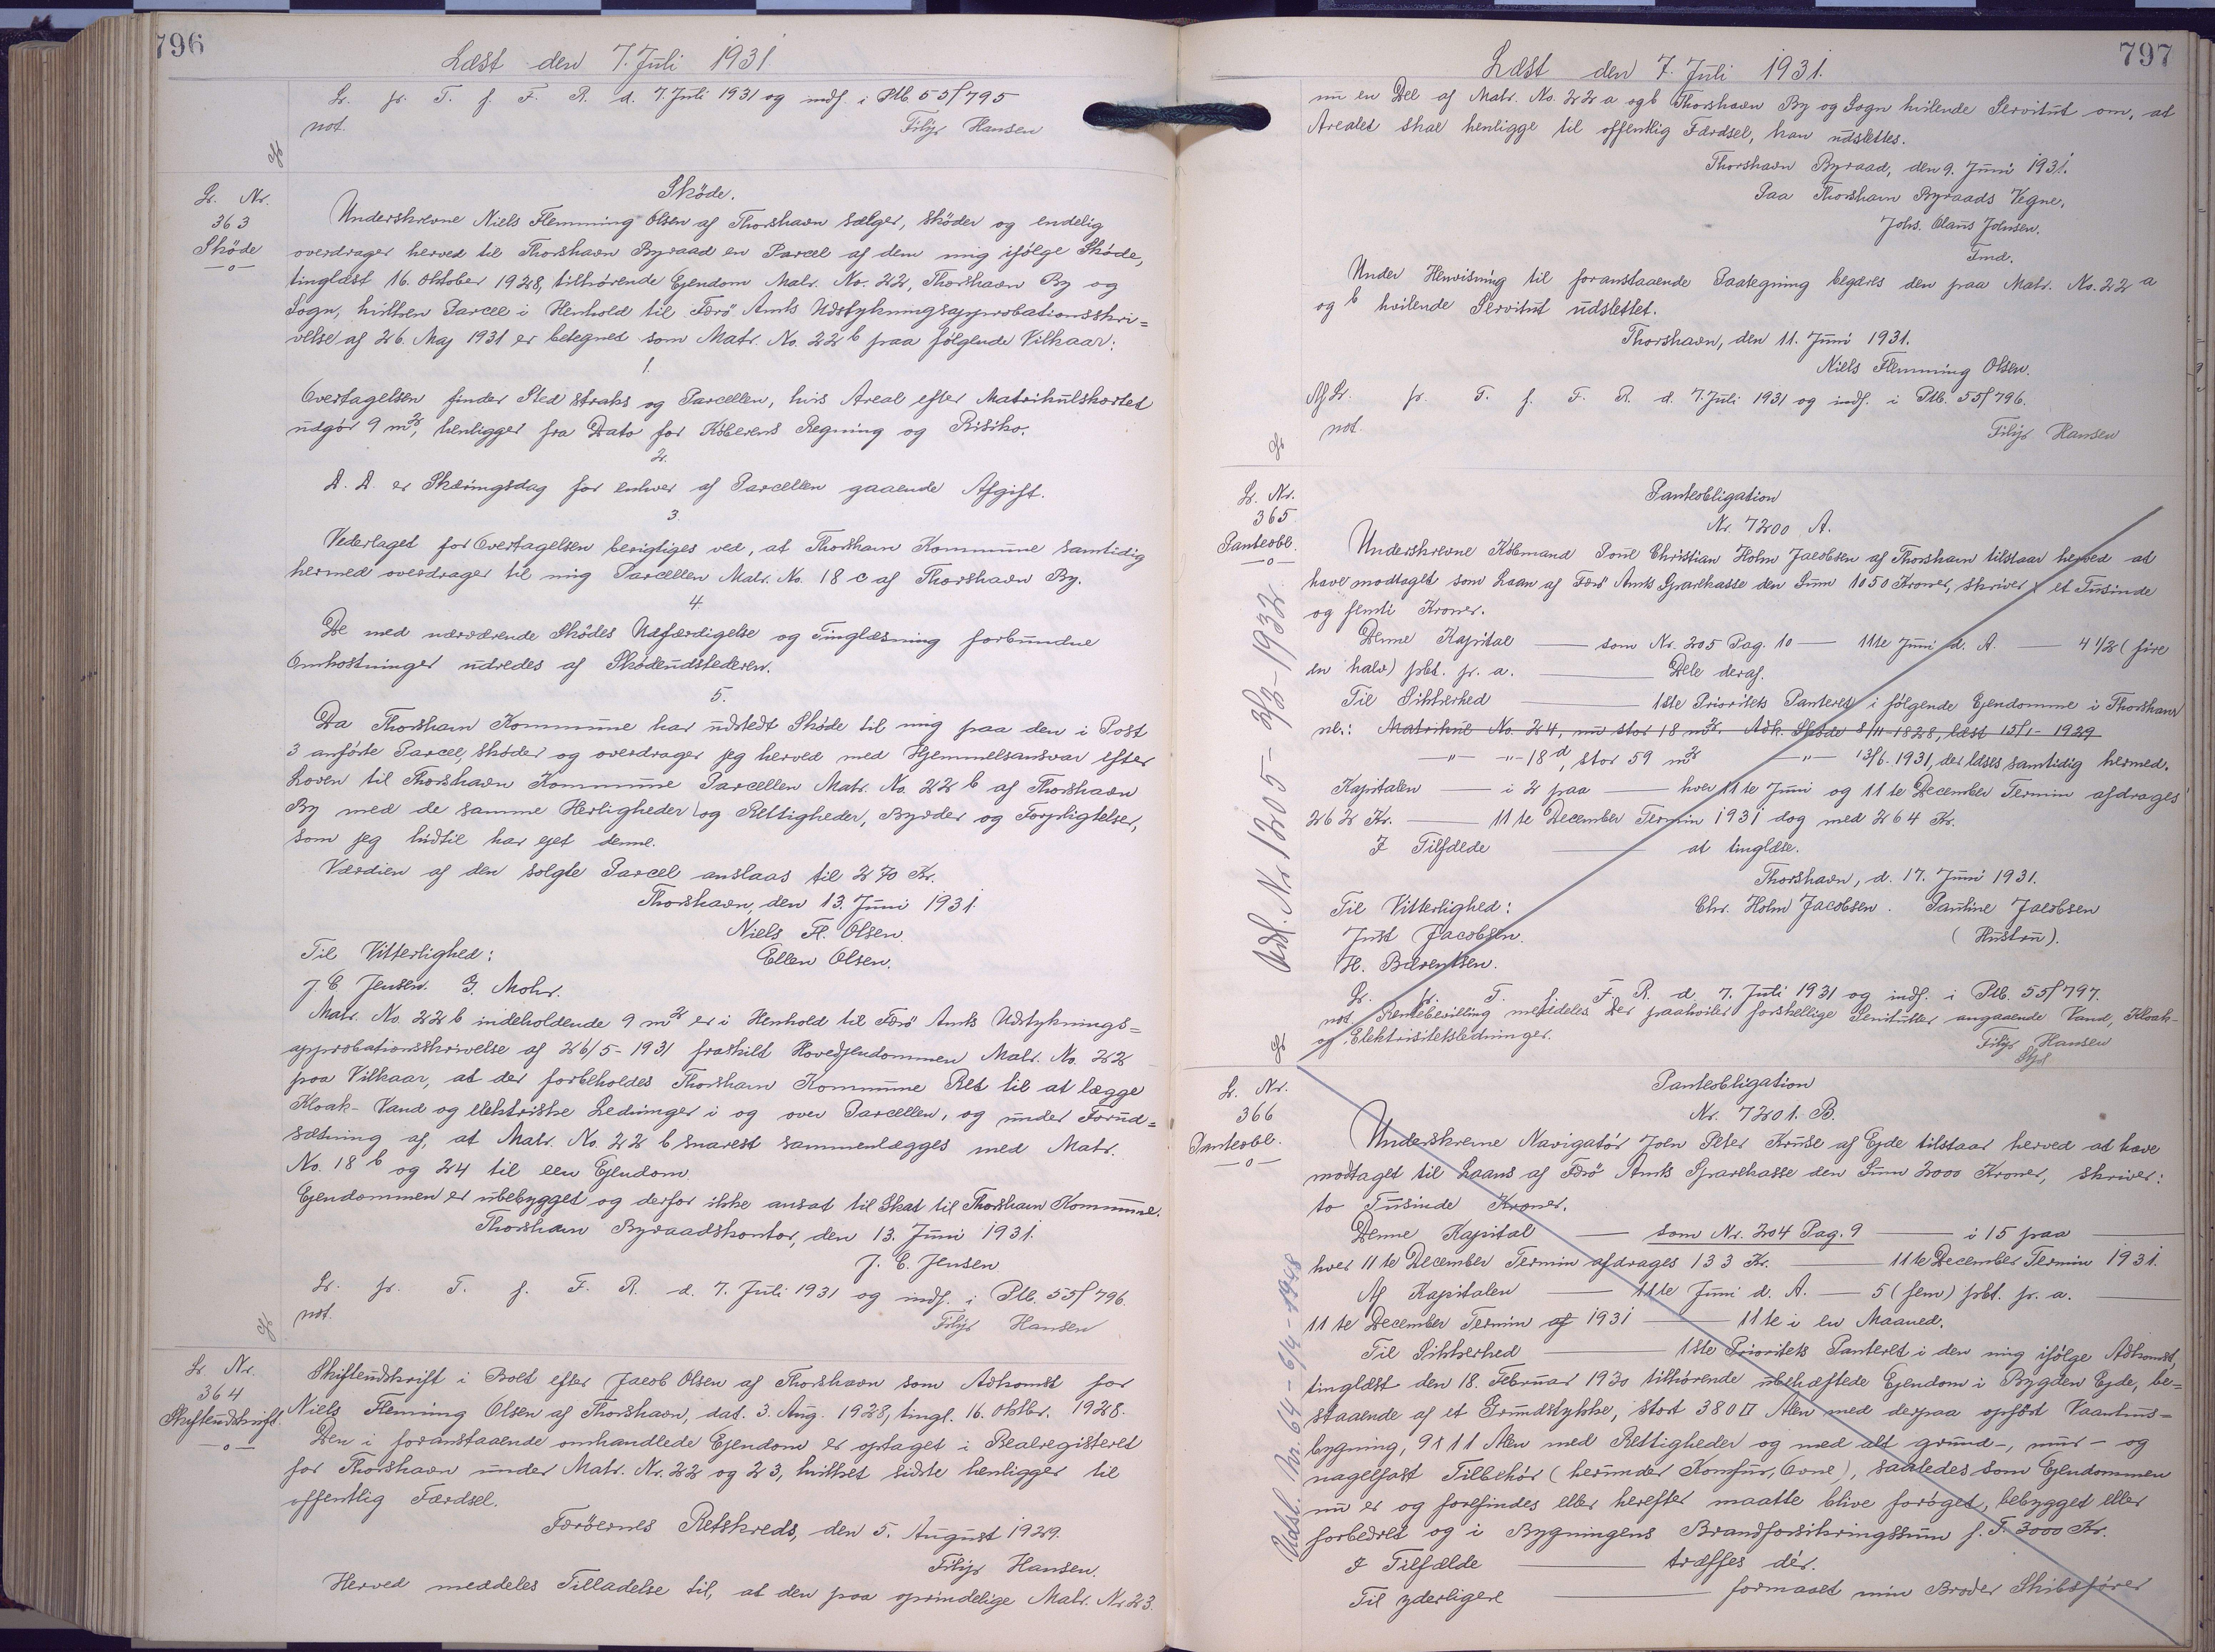 796
Læst den 7. Juli 1931.
Lr. fr. T. f. F. R. d. 7. Juli 1931 og indf. i Ptb. 55f 795
not.
Filip Hansen
Lr. Nr.
363
Skøde
Skøde.
Underskrevne Niels Flemming Olsen af Thorshavn sælger, skøder og endelig
overdrager herved til Thorshavn Byraad en Parcel af dem mig ifølge Skøde,
tinglæst 16. Oktober 1928, tilhørende Ejendom Matr. No. 22, Thorshavn By og
Sogn, hvilken Parcel i Henhold til Færø Amts Udstykningsapprobationsskri=
velse af 26. Maj 1931 er betegnet som Matr. No. 22 b paa følgende Vilkaar:
1.
Overtagelsen finder Sted straks og Parcellen, hvis Areal efter Matrikulskortet
udgør 9 m2, henligger fra Dato for Køberens Regning og Risiko.
2.
D. D. er Skæringsdag for enhver af Parcellen gaaende Afgift.
3.
Vederlaget for Overtagelsen berigtiges ved, at Thorshavn Kommune samtidig
hermed overdrager til mig Parcellen Matr. No. 18 c af Thorshavn By.
4.
De med nærværende Skødes Udfærdigelse og Tinglæsning forbundne
Omkostninger udredes af Skødeudstederen.
5.
Da Thorshavn Kommune har udstedt Skøde til mig paa den i Post
3 anførte Parcel, skøder og overdrager jeg herved med Hjemmelsansvar efter
Loven til Thorshavn Kommune Parcellen Matr. No. 22 b af Thorshavn
By med de samme Herligheder og Rettigheder, Byrder og Forpligtelser,
som jeg hidtil har ejet denne.
Værdien af den solgte Parcel anslaas til 270 Kr.
Thorshavn, den 13. Juni 1931.
Niels Fl. Olsen.
Til Vitterlighed:
Ellen Olsen.
J. C. Jensen. G. Mohr.
Matr. No. 22 b indeholdende 9 m2 er i Henhold til Færø Amts Udstyknings=
approbationsskrivelse af 26/5-1931 fraskilt Hovedejendommen Matr. No. 22
paa Vilkaar, at der forbeholdes Thorshavn Kommune Ret til at lægge
Kloak- Vand og elektriske Ledninger i og over Parcellen, og under Forud=
sætning af, at Matr. No. 22 b snarest sammenlægges med Matr.
No. 18 b og 24 til een Ejendom.
Ejendommen er ubebygget og derfor ikke ansat til Skat til Thorshavn Kommune.
Thorshavn Byraadskontor, den 13. Juni 1931.
J. C. Jensen
Lr. fr. T. f. F. R. d. 7. Juli 1931 og indf. i Ptb. 55f 796.
not.
Filip Hansen
Lr. Nr.
364
Skifteudskrift.
Skifteudskrift i Boet efter Jacob Olsen af Thorshavn som Adkomst for
Niels Flemming Olsen af Thorshavn, dat. 3. Aug. 1928, tingl. 16. Oktbr. 1928.
Den i foranstaaende omhandlede Ejendom er optaget i Realregisteret
for Thorshavn under Matr. Nr. 22 og 23, hvilket sidste henligger til
offentlig Færdsel.
Færøernes Retskreds, den 5. August 1929.
Filip Hansen.
Herved meddeles Tilladelse til, at den paa oprindelige Matr. Nr. 23.
797
Læst den 7. Juli 1931.
nu en Del af Matr. No. 22 a og b Thorshavn By og Sogn hvilende Servitut om, at
Arealet skal henligge til offentlig Færdsel, kan udslettes.
Thorshavn Byraad, den 9. Juni 1931.
Paa Thorshavn Byraads Vegne,
Johs. Olaus Johnsen.
Fmd.
Under Henvisning til foranstaaende Paategning begæres den paa Matr. No. 22 a
og b hvilende Servitut udslettet.
Thorshavn, den 11. Juni 1931.
Niels Flemming Olsen.
Af Lr. fr. T. f. F. R. d. 7. Juli 1931 og indf. i Ptb. 55f 796.
not.
Filip Hansen
Lr. Nr.
365
Panteobl.
Panteobligation
Nr. 7200 A.
Underskrevne Købmand Poul Christian Holm Jacobsen af Thorshavn tilstaar herved at
have modtaget som Laan af Færø Amts Sparekasse den Sum 1050 Kroner, skriver et Tusinde
og femti Kroner.
Denne Kapital — som Nr. 205 Pag. 10 — 11te Juni d. A. — 4 1/2 (fire
en halv) pCt. p. a. — Dele deraf.
Til Sikkerhed — 1ste Prioritets Panteret i følgende Ejendomme i Thorshavn
nl.: Matrikul No. 24, nu stor 18 m2. Adk. Skøde 8/11-1828, læst 15/1-1929
-"- -"- 18 d, stor 59 m2 -"- 13/6. 1931, der læses samtidig hermed.
Kapitalen — i 2 paa — hver 11te Juni og 11te December Termin afdrages
262 Kr. — 11te December Termin 1931 dog med 264 Kr.
I Tilfælde — at tinglæse.
Thorshavn, d. 17. Juni 1931.
Til Vitterlighed:
Chr. Holm Jacobsen. Pauline Jacobsen
Just Jacobsen.
(Hustru).
H. Bærentsen.
Lr. fr. T. f. F. R. d. 7. Juli 1931 og indf. i Ptb. 55f 797.
not. Rentebevilling meddeles. Der paahviler forskellige Servitutter angaaende Vand, Kloak-
og Elektricitetsledninger.
Filip Hansen
Udsl. Nr 1205 - 3/3-1932
Lr. Nr.
366
Panteobl.
Panteobligation
Nr. 7201. B.
Underskrevne Navigatør Joen Peter Kruse af Ejde tilstaar herved at have
modtaget til Laans af Færø Amts Sparekasse den Sum 2000 Kroner, skriver:
to Tusinde Kroner.
Denne Kapital — som Nr. 204 Pag. 9 — i 15 paa —
hver 11te December Termin afdrages 133 Kr. — 11te December Termin 1931.
Af Kapitalen — 11te Juni d. A. — 5 (fem) pCt. p. a. —
11te December Termin af 1931 — 11te i en Maaned.
Til Sikkerhed — 1ste Prioritets Panteret i den mig ifølge Adkomst,
tinglæst den 18. Februar 1930 tilhørende ubehæftede Ejendom i Bygden Ejde, be=
staaende af et Grundstykke, stort 380 □ Alen med derpaa opført Vaanhus=
bygning, 9x11 Alen med Rettigheder og med alt grund-, mur- og
nagelfast Tilbehør (herunder Komfur, Ovne), saaledes som Ejendommen
nu er og forefindes eller herefter maatte blive forøget, bebygget eller
forbedret og i Bygningens Brandforsikringssum f. T. 3000 Kr.
I Tilfælde — træffes dér.
Til yderligere — formaaet min Broder Skibsfører
Udsl. Nr. 64 - 6/4 - 1948